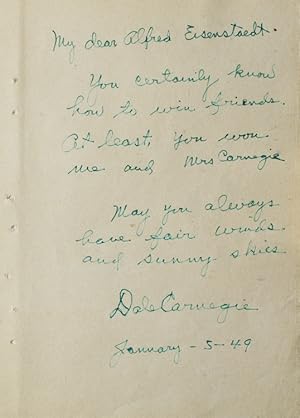 My dear Alfred Eisenstaedt.
You certainly know
how to win friends.
At least, you won
me and Mrs Carnegie
May you always
have fair winds
and sunny skies
Dale Carnegie
January - 5 - 49